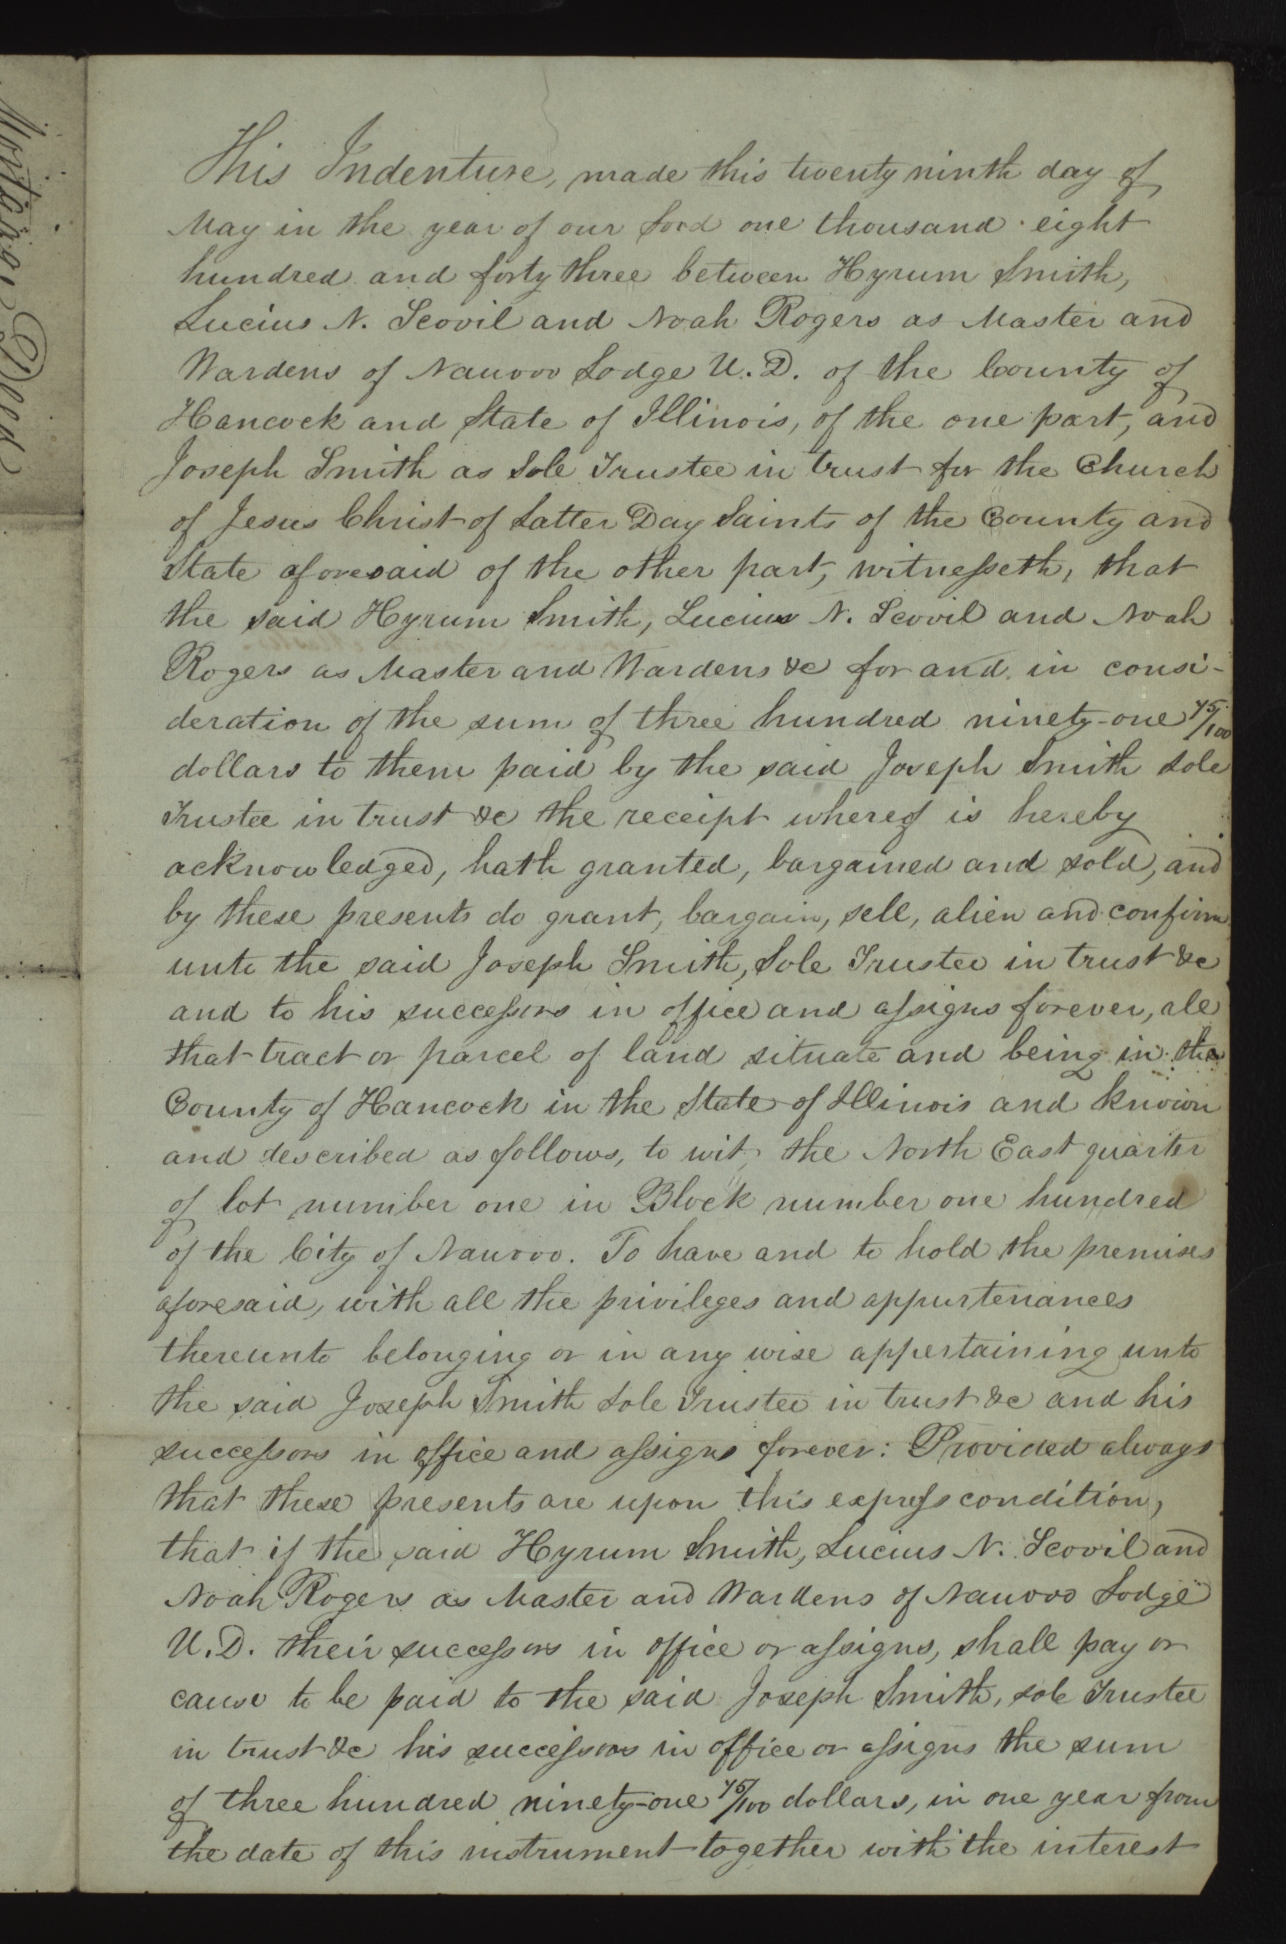 Mortgage Deed
This Indenture, made this twenty ninth day of
May in the year of our Lord one thousand eight
hundred and forty three between Hyrum Smith,
Lucius N. Scovil and Noah Rogers as Master and
Wardens of Nauvoo Lodge U. D. of the County of
Hancock and State of Illinois, of the one part, and
Joseph Smith as Sole Trustee in trust for the Church
of Jesus Christ of Latter Day Saints of the County and
State aforesaid of the other part, witnesseth, that
the said Hyrum Smith, Lucius N. Scovil and Noah
Rogers as Master and Wardens &c for and in consi-
deration of the sum of three hundred ninety-one 75/100
dollars to them paid by the said Joseph Smith sole
Trustee in trust &c the receipt whereof is hereby
acknowledged, hath granted, bargained and sold, and
by these presents do grant, bargain, sell, alien and confirm
unto the said Joseph Smith, Sole Trustee in trust &c
and to his successors in office and assigns forever, all
that tract or parcel of land situate and being in the
County of Hancock in the State of Illinois and known
and described as follows, to wit, the North East quarter
of lot number one in Block number one hundred
of the City of Nauvoo. To have and to hold the premises
aforesaid, with all the privileges and appurtenances
thereunto belonging or in any wise appertaining unto
the said Joseph Smith Sole Trustee in trust &c and his
successors in office and assigns forever: Provided always
that these presents are upon this express condition,
that if the said Hyrum Smith, Lucius N. Scovil and
Noah Rogers as Master and Wardens of Nauvoo Lodge
U. D. their successors in office or assigns, shall pay or
cause to be paid to the said Joseph Smith, sole Trustee
in trust &c his successors in office or assigns the sum
of three hundred ninety-one 75/100 dollars, in one year from
the date of this instrument together with the interest